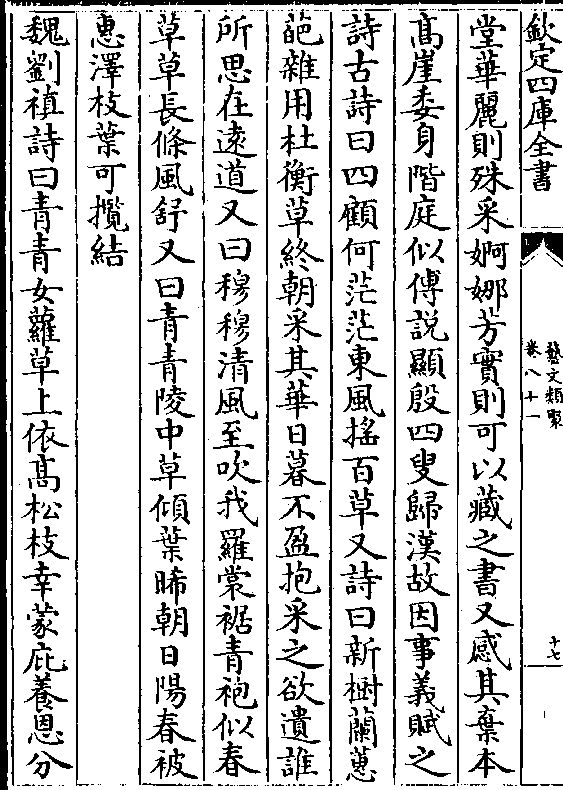 欽定四庫全書
藝文類聚
卷八十一
十七
堂華麗則殊采婀娜芳實則可以藏之書又感其棄本
高崖委身階庭似傅說顯殷四叟歸漢故因事義賦之
詩古詩曰四顧何茫茫東風搖百草又詩曰新樹蘭蕙
葩雜用杜衡草終朝采其華日暮不盈抱采之欲遺誰
所思在遠道又曰穆穆清風至吹我羅裳裾青袍似春
草草長條風舒又曰青青陵中草傾葉晞朝日陽春被
惠澤枝葉可攬結
魏劉禎詩曰青青女蘿草上依高松枝幸蒙庇養恩分